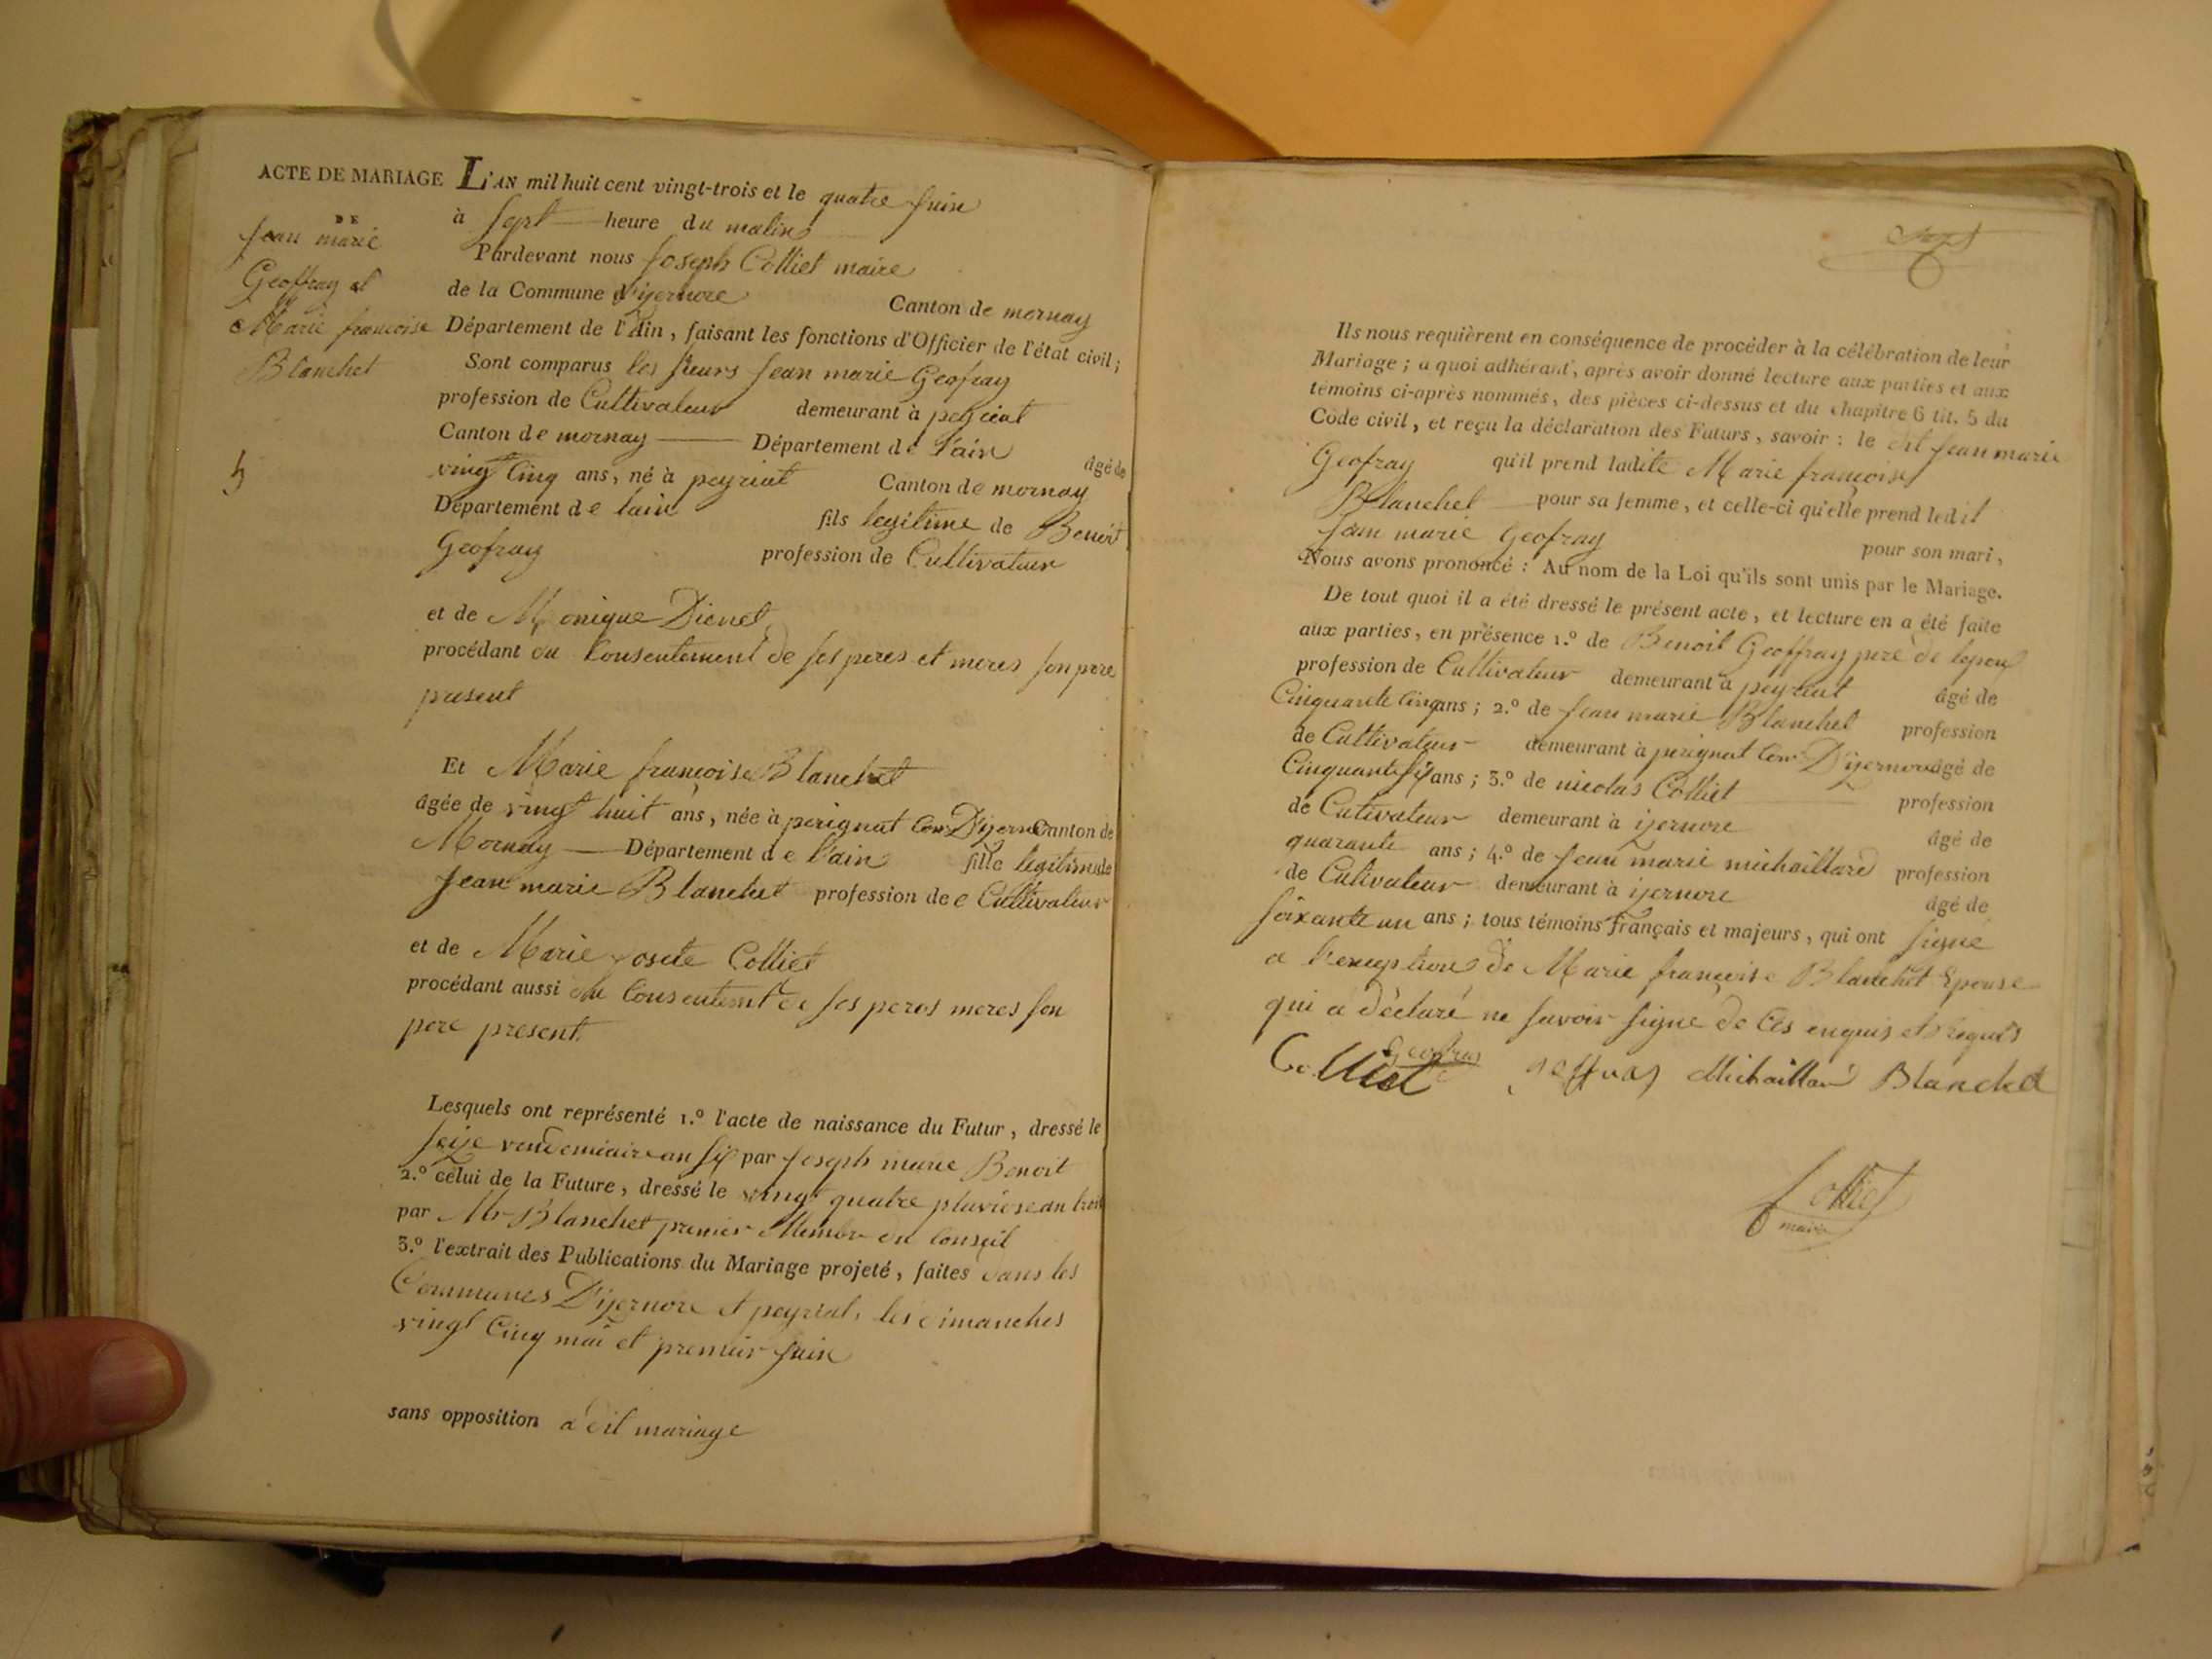 ACTE DE MARIAGE
DE
Jean marie
Geoffray et
Marie francoise
Blanchet
5
L'AN mil huit cent vingt-trois et le quatre juin
à sept heure du matin
Pardevant nous joseph Colliet maire
de la Commune d'ijernore Canton de mornay
Département de l'Ain, faisant les fonctions d'Officier de l'état civil;
Sont comparus les sieurs jean marie Geofray
profession de Cultivateur demeurant à peyriat
Canton de mornay Département de l'ain âgé de
vingt Cinq ans, né à peyriat Canton de mornay
Département de lain fils legitime de Benoit
Geofray profession de Cultivateur
et de Monique
procédant du Consentement de ses peres et meres son pere
present
Et Marie françoise Blanchet
âgée de vingt huit ans, née à perignat Com D'ijernore Canton de
Mornay Département de l'ain fille legitime de
jean marie Blanchet profession de Cultivateur
et de Marie Colliet
procédant aussi du Consentemt de ses peres meres son
pere present
Lesquels ont représenté 1.º l'acte de naissance du Futur, dressé le
seize vendemiaire an six par joseph marie Benoit
2.º celui de la Future, dressé le vingt quatre pluviose an trois
par Mr Blanchet premier Membre du Conseil
3.º l'extrait des Publications du Mariage projeté, faites dans les
Communes D'ijernore et peyriat, les dimanches
vingt Cinq mai et premier juin
sans opposition a dit mariage
Ils nous requièrent en conséquence de procéder à la célébration de leur
Mariage; a quoi adhérant, après avoir donné lecture aux parties et aux
témoins ci-après nommés, des pièces ci-dessus et du chapitre 6 tit. 5 du
Code civil, et reçu la déclaration des Futurs, savoir: le dit jean marie
Geofray qu'il prend ladite Marie françoise
Blanchet pour sa femme, et celle-ci qu'elle prend ledit
jean marie Geofray pour son mari,
Nous avons prononcé: Au nom de la Loi qu'ils sont unis par le Mariage.
De tout quoi il a été dressé le présent acte, et lecture en a été faite
aux parties, en présence 1.º de Benoit Geoffray pere de lepoux
profession de Cultivateur demeurant à peyriat âgé de
Cinquante Cinq ans; 2.º de jean marie Blanchet profession
de Cultivateur demeurant à perignat Com D'ijernore âgé de
Cinquante six ans; 3.º de nicolas Colliet profession
de Cutivateur demeurant à ijernore âgé de
quarante ans; 4.º de jean marie michaillard profession
de Cutivateur demeurant à ijernore âgé de
soixante un ans; tous témoins français et majeurs, qui ont signé
a l'exception de Marie françoise Blanchet Epouse
qui a déclaré ne savoir signé de Ces enquis et requis
Colliet Geofray geffray Michaillard Blanchet
Colliet
maire